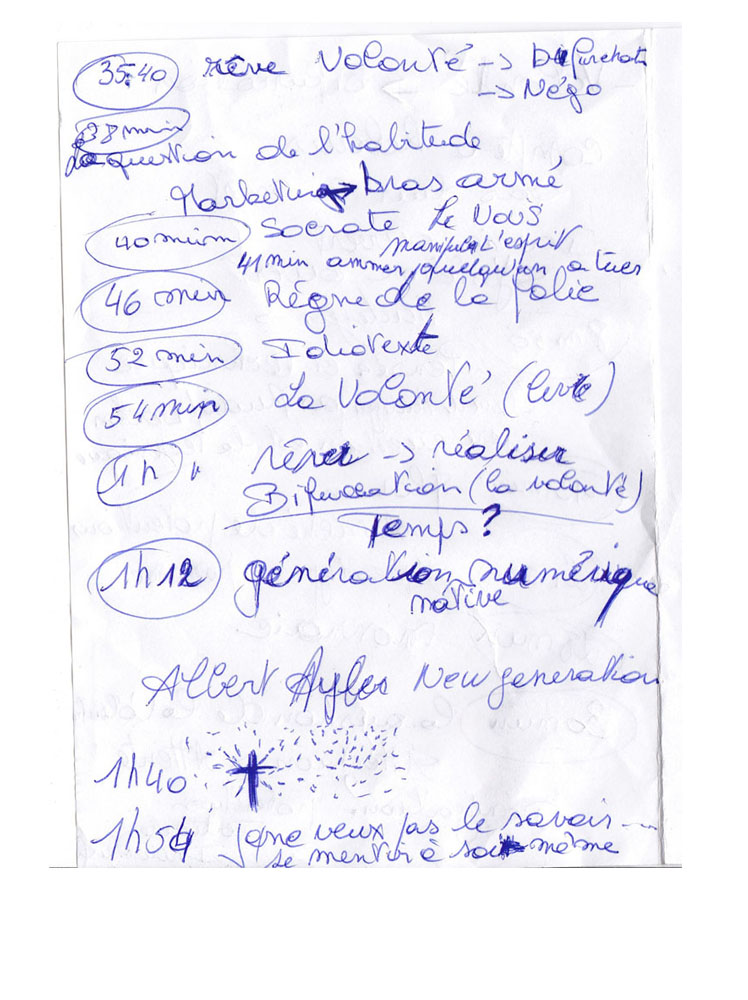 35.40 rêve Volonté →
→ Négo
38 min
La question de l'habitude
Marketing → bras armé
40 minim Socrate Le Noüs
manipuler l'esprit
41 min ammener quelqu'un a tuer
46 min Règne de la folie
52 min Idiotexte
54 min La Volonté (livre)
1h " rêver → réaliser
Bifurcation (la volonté)
Temps?
1h12 génération numérique
native
Albert Ayler New generation
1h40
1h54 je ne veux pas le savoir ----
se mentir à soi même